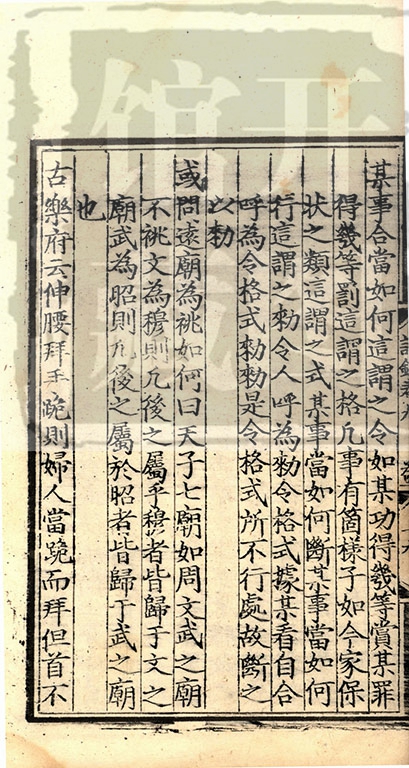 某事合當如何這謂之令如某功得幾等賞某罪
得幾等罰這謂之格凡事有箇樣子如今家保
狀之類這謂之式某事當如何斷某事當如何
行這謂之勑令人呼為勑令格式據某看自合
呼為令格式勑勑是令格式所不行處故斷之
以勑
或問遠廟為祧如何曰天子七廟如周文武之廟
不祧文為穆則凡後之屬乎穆者皆歸于文之
廟武為昭則凡後之屬於昭者皆歸于武之廟
也
古樂府云伸腰拜手跪則婦人當跪而拜但首不